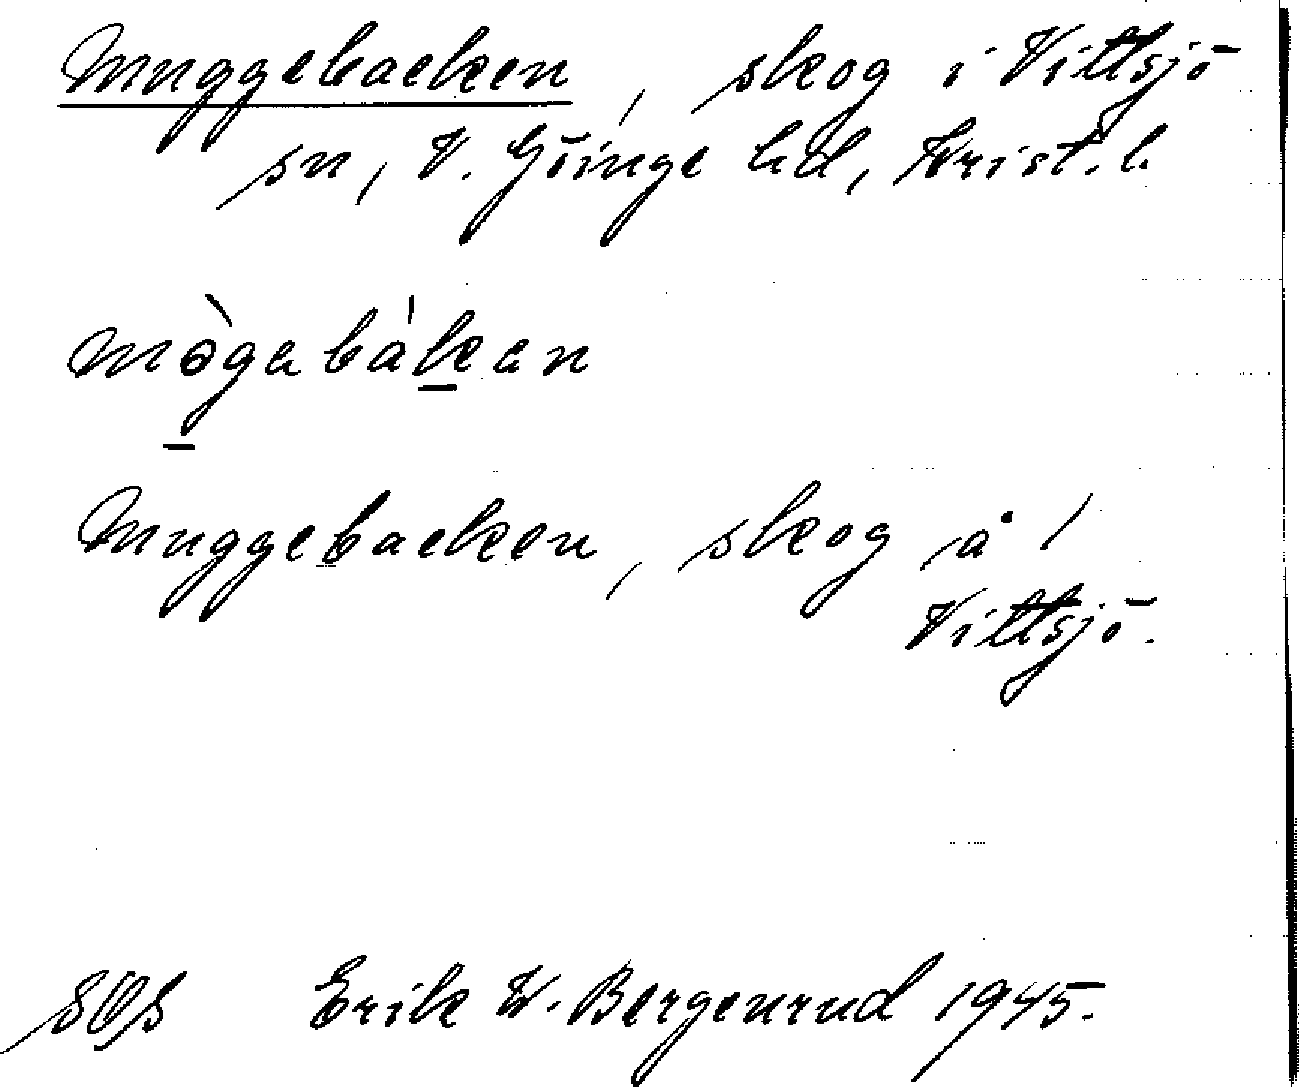 Muggebacken, skog i Vittsjö
sn, V. Göinge hd, Krist. l.
Muggebacken, skog å 1
Vittsjö.
Erik W. Bergenrud 1945.